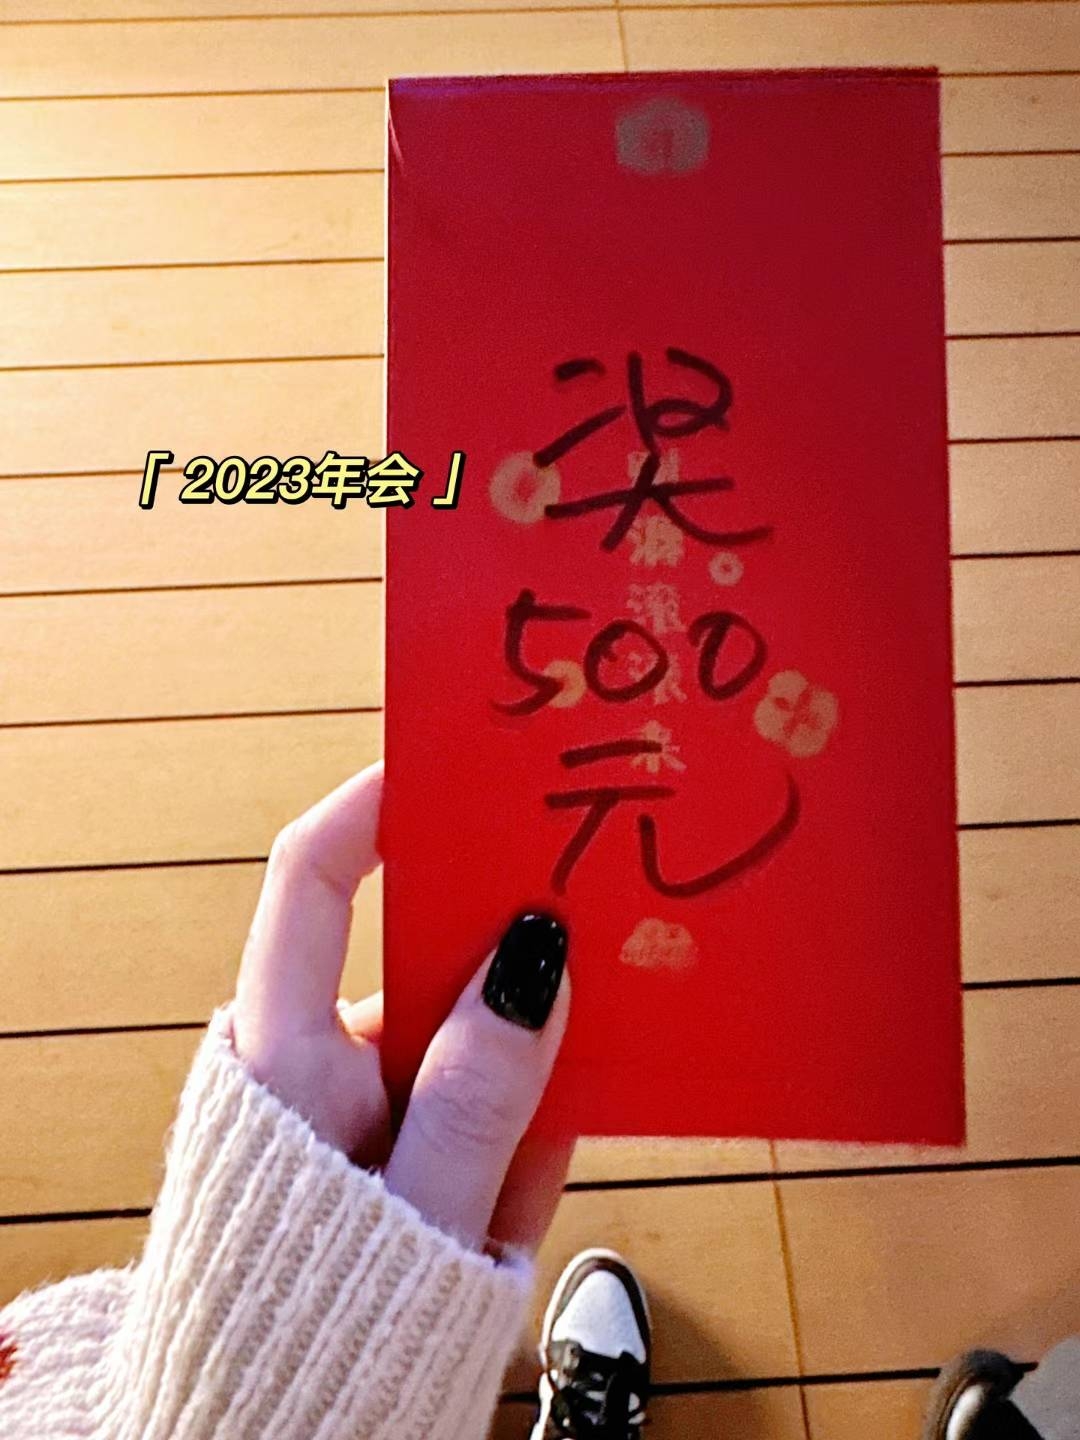 「 2023年会 」
奖
500
元
滚
滚
来